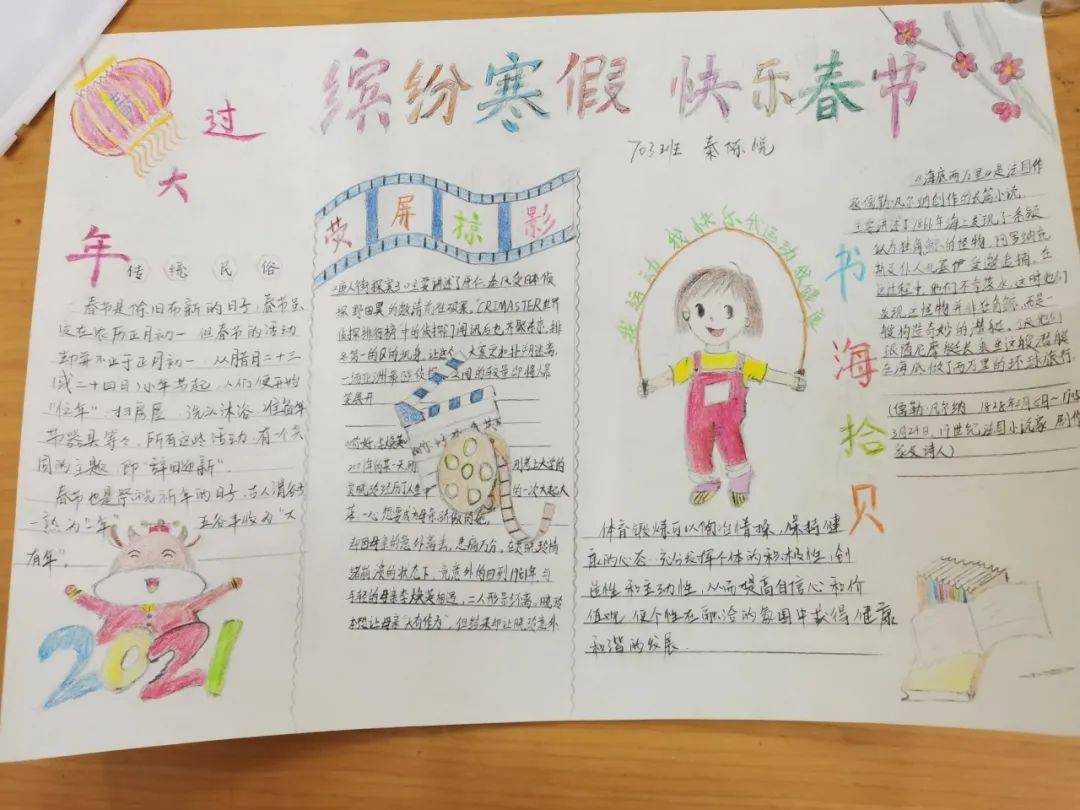 缤纷寒假 快乐春节
703班 秦陈悦
过大年
传统民俗
春节是除旧布新的日子,春节虽
定在农历正月初一,但春节的活动
却并不止于正月初一.从腊月二十三
(或二十四日)小年节起,人们便开始
"忙年":扫房屋 洗头沐浴 准备年
节器具等々,所有这些活动,有一个共
同的主题,即"辞旧迎新".
春节也是祭祝祈年的日子,古人谓谷子
一熟为"年" 五谷丰收为"大
有年".
2021
荧屏掠影
《唐人街探案3》主要讲述了唐仁、秦风受日本侦
探野田昊的邀请前往破案."CRIMASTER世界
侦探排行榜"中的侦探们闻讯后也齐聚东京,排
名第一的Q的现身,让这个
一场亚洲最强侦探之间的较量即将展
笑展开
《你好,李焕英》
2001年的某一天,刚考上大学的
贾晓玲经历了人生中的一次大起大
落.一心想要成为母亲骄傲的她,
却因母亲的意外离去,悲痛万分,在贾晓玲情
绪崩溃的状态下,竟意外的回到1981年,与
年轻的母亲李焕英相遇,二人形影不离,晓玲
本想让母亲"大有作为",但结果却让晓玲意外
我运动我快乐我运动我健康
体育锻炼可以陶冶情操,保持健
康的心态,充分发挥个体的积极性、创
造性和主动性,从而提高自信心和价
值观,使个性在融洽的氛围中获得健康
和谐的发展.
书海拾贝
《海底两万里》是法国作
家儒勒·凡尔纳创作的长篇小说.
主要讲述了1866年海上发现了一条疑
似为独角鲸的怪物,阿罗纳克
斯及仆人孔塞伊受邀追捕.在
过程中,他们不幸落水,这时他们
发现这怪物并非独角鲸,而是一
艘构造奇妙的潜艇.
尼摩艇长乘坐这艘潜艇
在海底做了两万里的环球旅行.
(儒勒·凡尔纳 1828年2月8日—1905
3月24日,19世纪法国小说家 剧作
家及诗人)